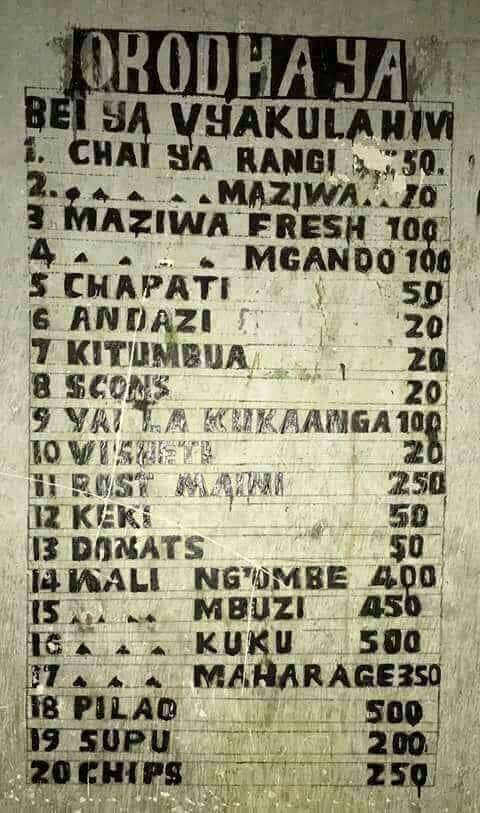 ORODHA YA
BEI YA VYAKULA HIVI
1. CHAI YA RANGI 50.
2. „ „ „ „ MAZIWA.. 70
3 MAZIWA FRESH 100
4 „ „ „ „ MGANDO 100
5 CHAPATI 50
6 ANDAZI 20
7 KITUMBUA 20
8 SCONS 20
9 YAI LA KUKAANGA 100
10 VISHETI 20
11 ROST MAINI 250
12 KEKI 50
13 DONATS 50
14 WALI NG'OMBE 400
15 „ „ „ MBUZI 450
16 „ „ „ KUKU 500
17 „ „ „ MAHARAGE 350
18 PILAO 500
19 SUPU 200
20 CHIPS 250